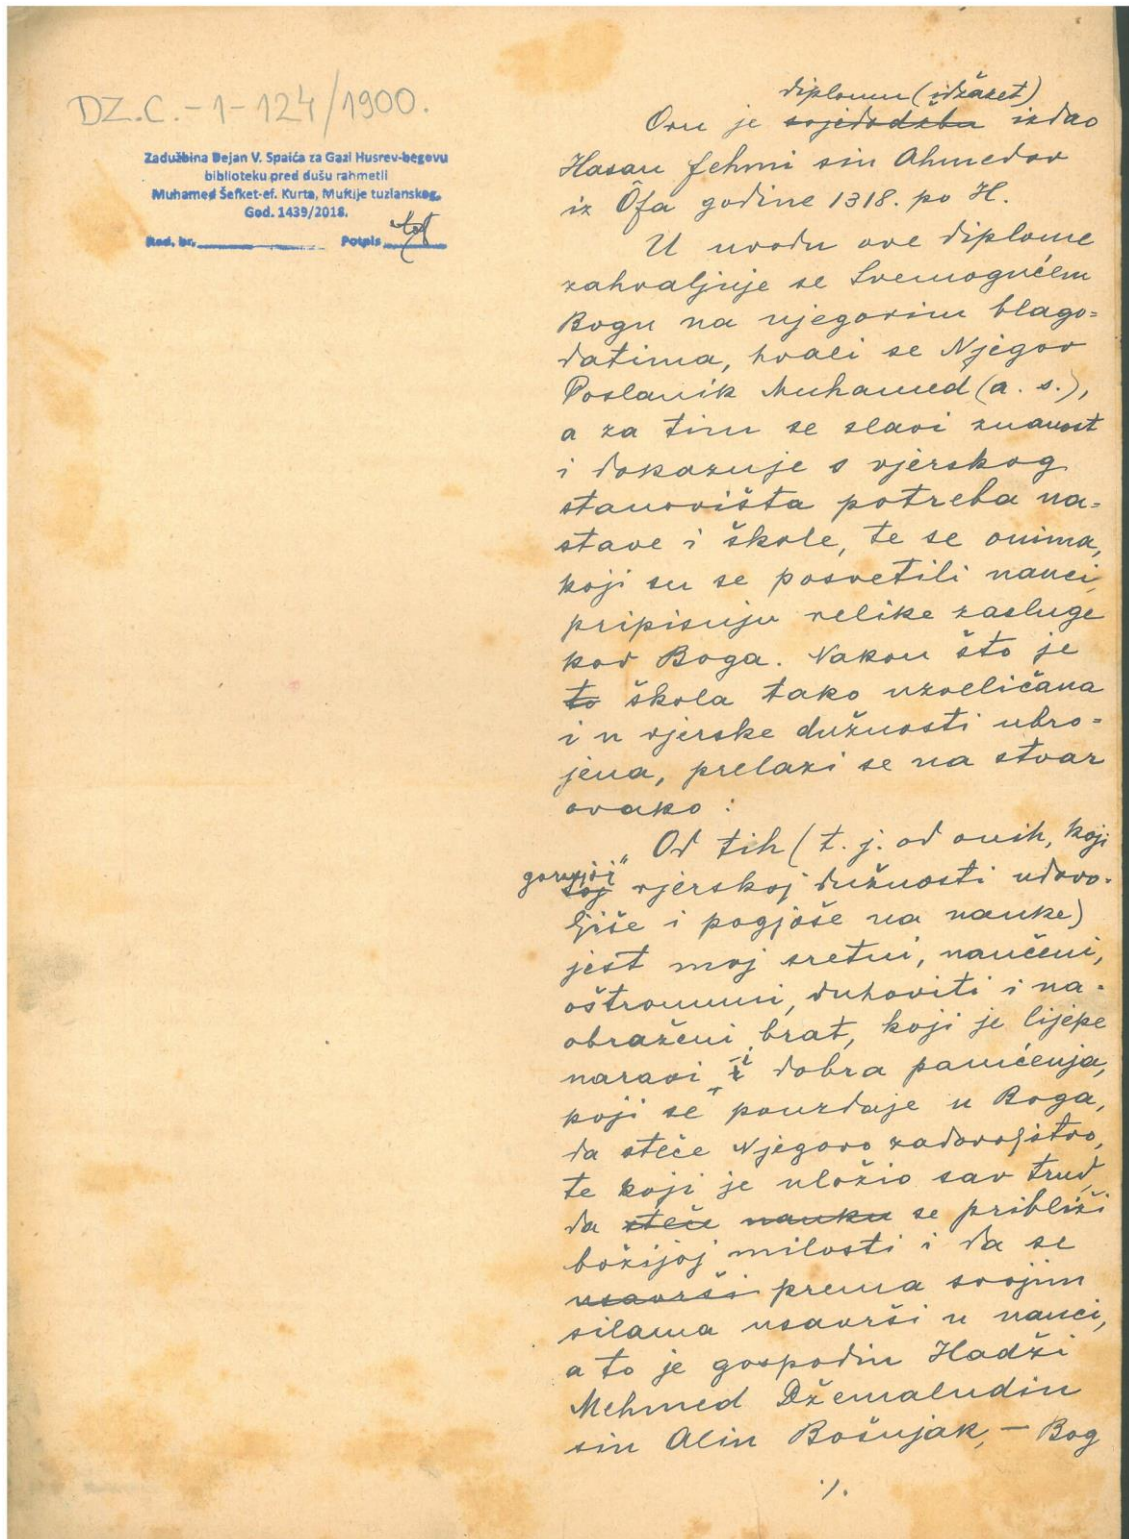 DZ.C.-1-124/1900.
Zadužbina Dejan V. Spaića za Gazi Husrev-begovu
biblioteku pred dušu rahmetli
Muhamed Šefket-ef. Kurta, Muftije tuzlanskog,
God. 1439/2018.
Red. br. Potpis
diplomu (idžazet)
Ovu je svjedodžbu izdao
Hasan fehmi sin Ahmedov
iz Ôfa godine 1318. po H.
U uvodu ove diplome
zahvaljuje se Svemogućem
Bogu na njegovim blago=
datima, hvali se Njegov
Poslanik Muhamed (a. s.),
a za tim se slavi znanost
i dokazuje s vjerskog
stanovišta potreba na=
stave i škole, te se onima,
koji su se posvetili nauci,
pripisuju velike zasluge
kod Boga. Nakon što je
to škola tako uzveličana
i u vjerske dužnosti ubro=
jena, prelazi se na stvar
ovako:
Od tih (t. j. od onih, koji
gornjoj
toj vjerskoj dužnosti udovo=
ljiše i pogjoše na nauke)
jest moj sretni, naučeni,
oštroumni, duhoviti i na=
obraženi brat, koji je lijepe
naravi i dobra pamćenja,
koji se pouzdaje u Boga,
da steče Njegovo zadovoljstvo,
te koji je uložio sav trud,
da steče nauku se približi
božijoj milosti i da se
usavrši prema svojim
silama usavrši u nauci,
a to je gospodin Hadži
Mehmed Džemaludin
sin Alin Bošnjak, – Bog
./.